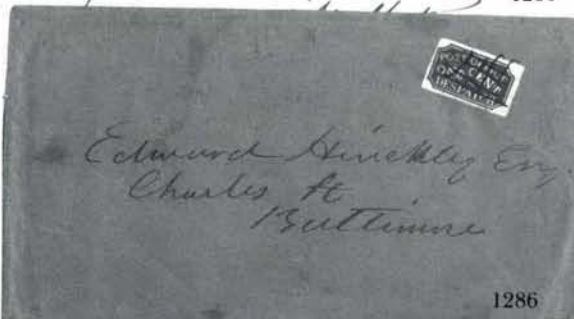 POST OFFICE
ONE CENT
DESPATCH
Edward Hinckley Esq.
Charles St
Baltimore
1286